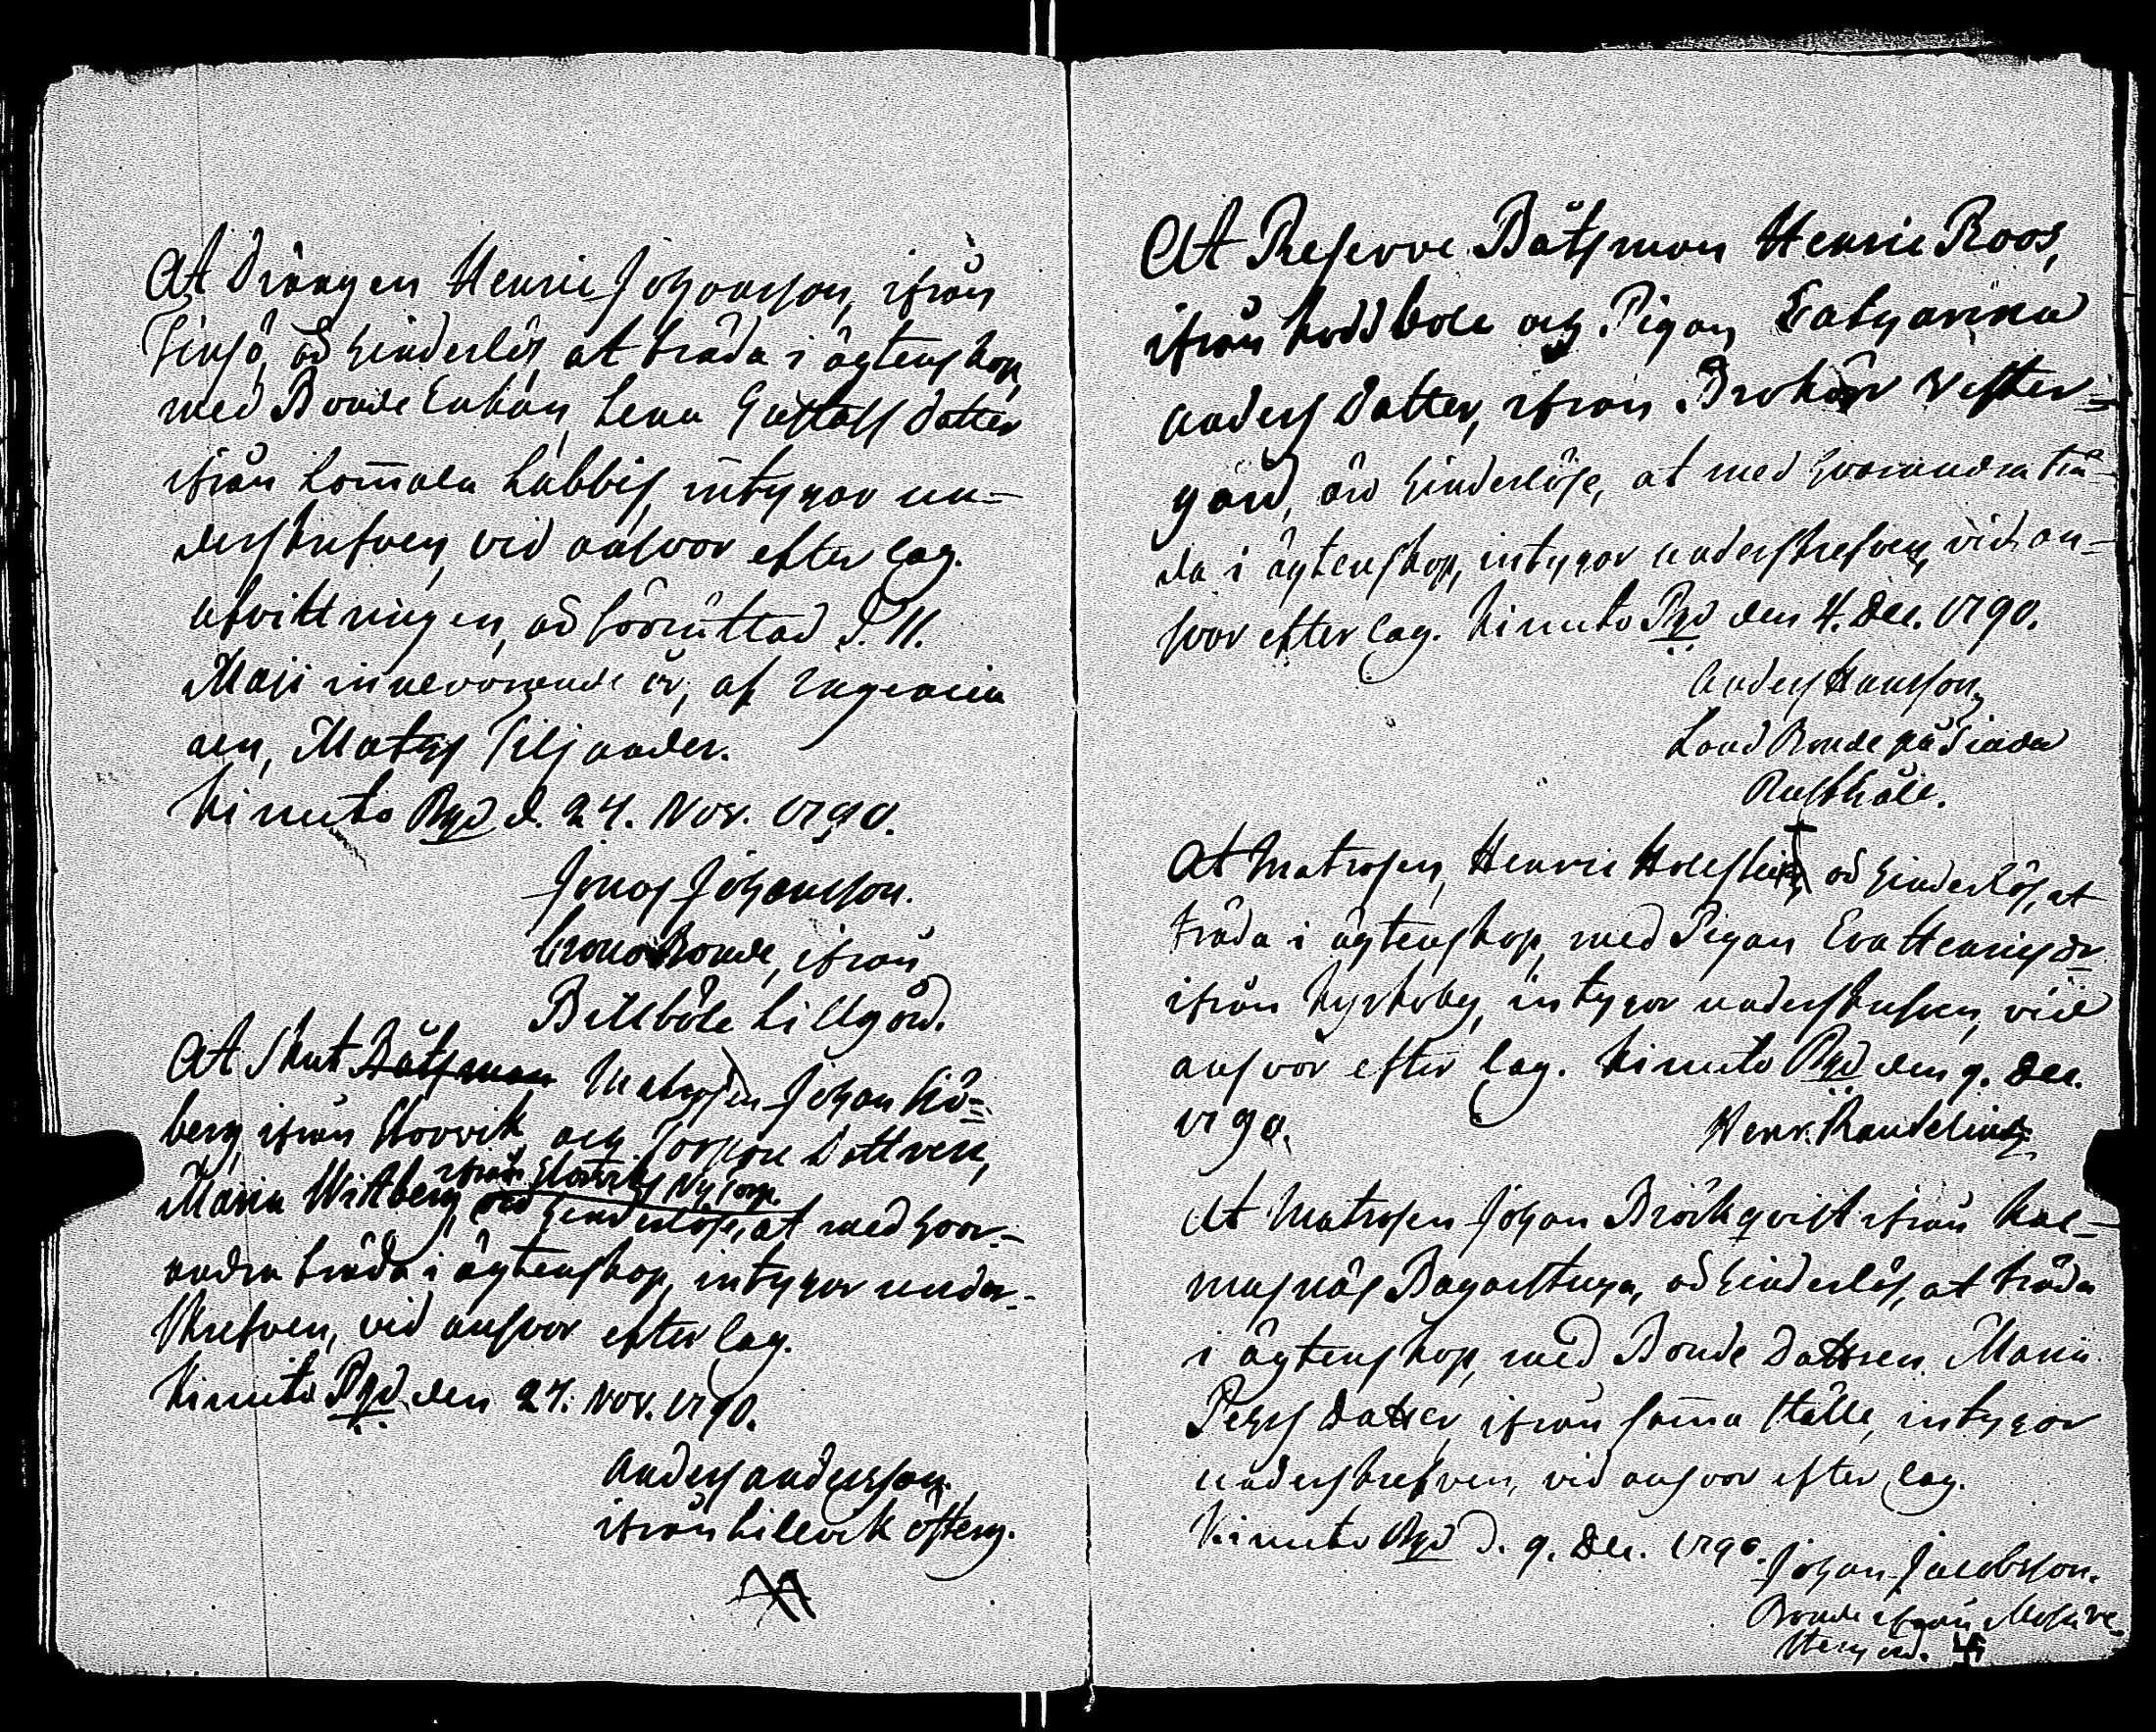 At Drängen Henric Johansson, ifrån
Finsjö, är hinderlös, at träda i ägtenskap,
med Bonde Enkan, Lena Gustafs dotter
ifrån Lom̄ala Labbis, intygar un-
derskrefven, vid ansvar efter lag.
Afvittringen, är förrättad d. 11.
Maji innevarande år, af
Maths Siljander.
Kimito Pgd d. 24. Nov. 1790.
Jonas Johansson.
Crono Bonde, ifrån
Billböle Lillgård.
At Skut Båtsman Matrosen Johan
berg, ifrån Storvik, och Torpare Dottren,
ifrån Nytorp.
Maria Witberg, hinderlöse, at med hvar-
andra träda i ägtenskap, intygar under-
skrefven, vid ansvar efter lag.
Kimito Pgd den 24. Nov. 1790.
Anders Andersson.
ifrån Lillevik österg.
At Reserve Båtsman Henric Roos,
ifrån Loddbole och Pigan Catharina
Anders Datter, ifrån Brokärr Vester-
gård, äro hinderlöse, at med hvarandra trä-
da i ägtenskap, intygar underskrefven, vid an-
svar efter lag. Kimito Pgd den 4. Dec. 1790.
Anders Hansson,
Land Bonde på
Rusthåll.
At Matrosen, Henric Hollsten, är hinderlös, at
träda i ägtenskap, med Pigan Eva Henricsdr
ifrån Kyrkoby, intygar underskrefven, vid
ansvar efter lag. Kimito Pgd den 9. Dec.
1790.
Henr. Randelin
At Matrosen Johan Björkqvist ifrån Kal-
musnäs Bagarstuga, är hinderlös, at träda
i ägtenskap, med Bonde Dottren Maria
Pehrs datter, ifrån sam̄a ställe, intygar
underskrefven, vid ansvar efter lag.
Kimito Pgd d. 9. Dec. 1790.
Johan Jacobsson.
Bonde ifrån Mosa ve-
stergård.